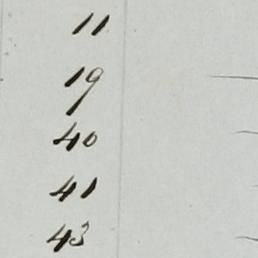 11
19
40
41
43